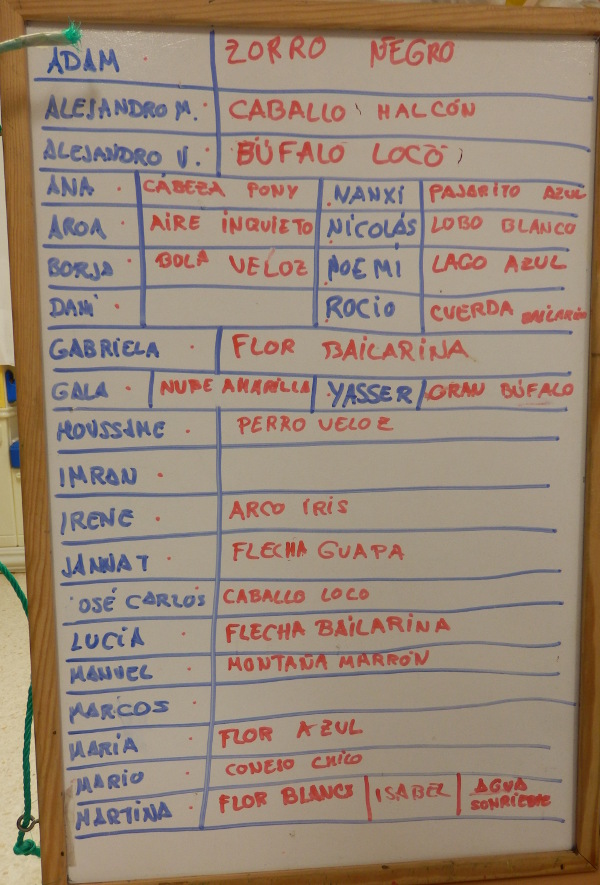 ADAM ZORRO NEGRO
ALEJANDRO M. CABALLO HALCÓN
ALEJANDRO V. BÚFALO LOCO
ANA CABEZA PONY NANXI PAJARITO AZUL
AROA AIRE INQUIETO NICOLÁS LOBO BLANCO
BORJA BOLA VELOZ NOEMÍ LAGO AZUL
DANI ROCIO CUERDA BAILARÍN
GABRIELA FLOR BAILARINA
GALA NUBE AMARILLA YASSER GRAN BÚFALO
HOUSSAME PERRO VELOZ
IMRAN
IRENE ARCO IRIS
JANNAT FLECHA GUAPA
OSÉ CARLOS CABALLO LOCO
LUCÍA FLECHA BAILARINA
MANUEL MONTAÑA MARRÓN
MARCOS
MARÍA FLOR AZUL
MARIO CONEJO CHICO
MARTINA FLOR BLANCA ISABEL AGUA
SONRIENTE